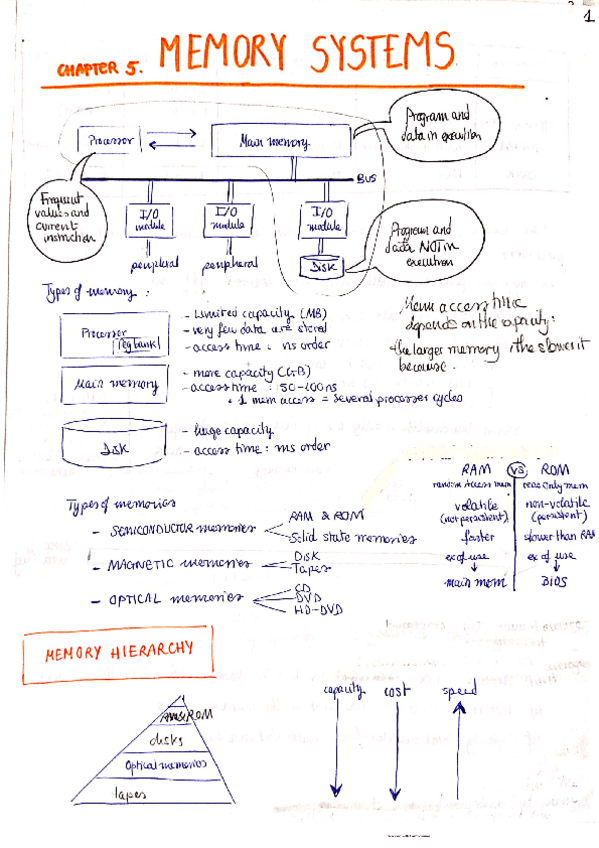 1
CHAPTER 5. MEMORY SYSTEMS
Processor
Main memory
Program and
data in execution
BUS
Frequent
values and
current
instruction
I/O
module
I/O
module
I/O
module
Program and
data NOT in
execution
peripheral
peripheral
DISK
Types of memory:
Processor
reg bank
- Limited capacity (MB)
- very few data are stored
- access time: ns order
Mem access time
depends on the capacity:
the larger memory, the slower it
because.
Main memory
- more capacity (GB)
- access time: 50-100ns
1 mem access = several processer cycles
Disk
- huge capacity
- access time: ms order
RAM VS ROM
random Access mem
read Only mem
volatile
(not persistent)
non-volatile
(persistent)
faster
slower than RA
ex of use
ex of use
main mem
BIOS
Types of memories
- SEMICONDUCTOR memories
RAM & ROM
Solid state memories
- MAGNETIC memories
Disk
Tapes
- OPTICAL memories
CD
DVD
HD-DVD
MEMORY HIERARCHY
RAM&ROM
disks
Optical memories
tapes
capacity cost speed